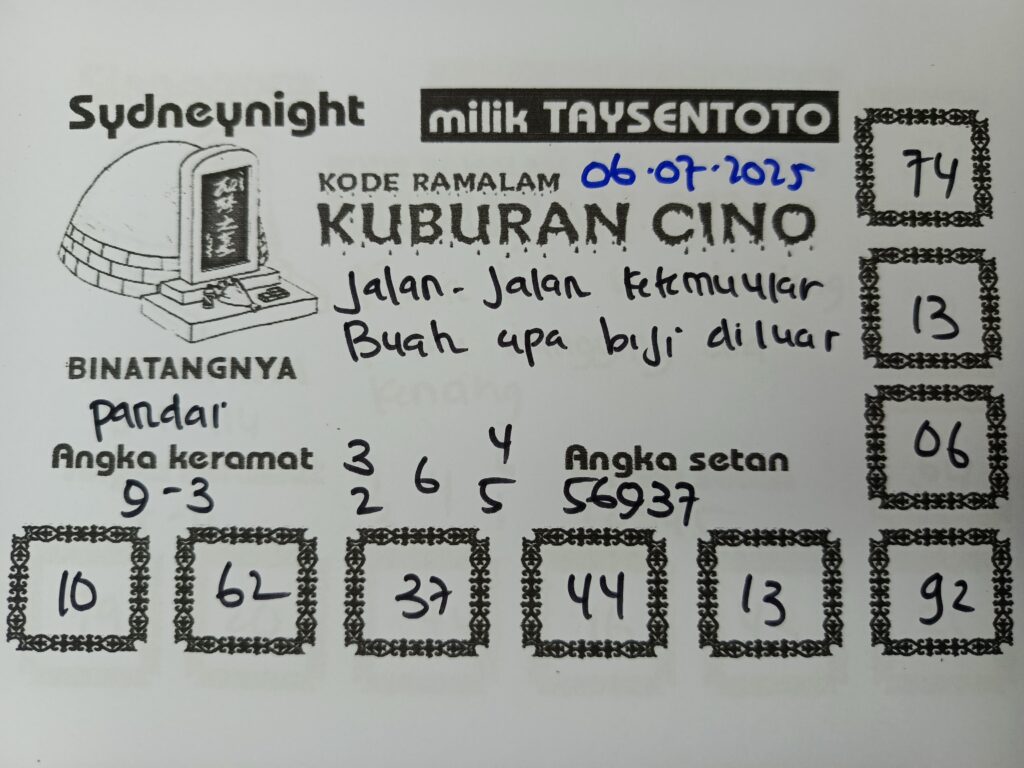 Sydneynight
milik TAYSENTOTO
KODE RAMALAM 06.07.2025
KUBURAN CINO
Jalan-Jalan KEKEMUULAR
Buah apa biji diluar
BINATANGNYA
pandai
Angka keramat
9-3
3 4
6
2 5
Angka setan
56937
74
13
06
10 62 37 44 13 92